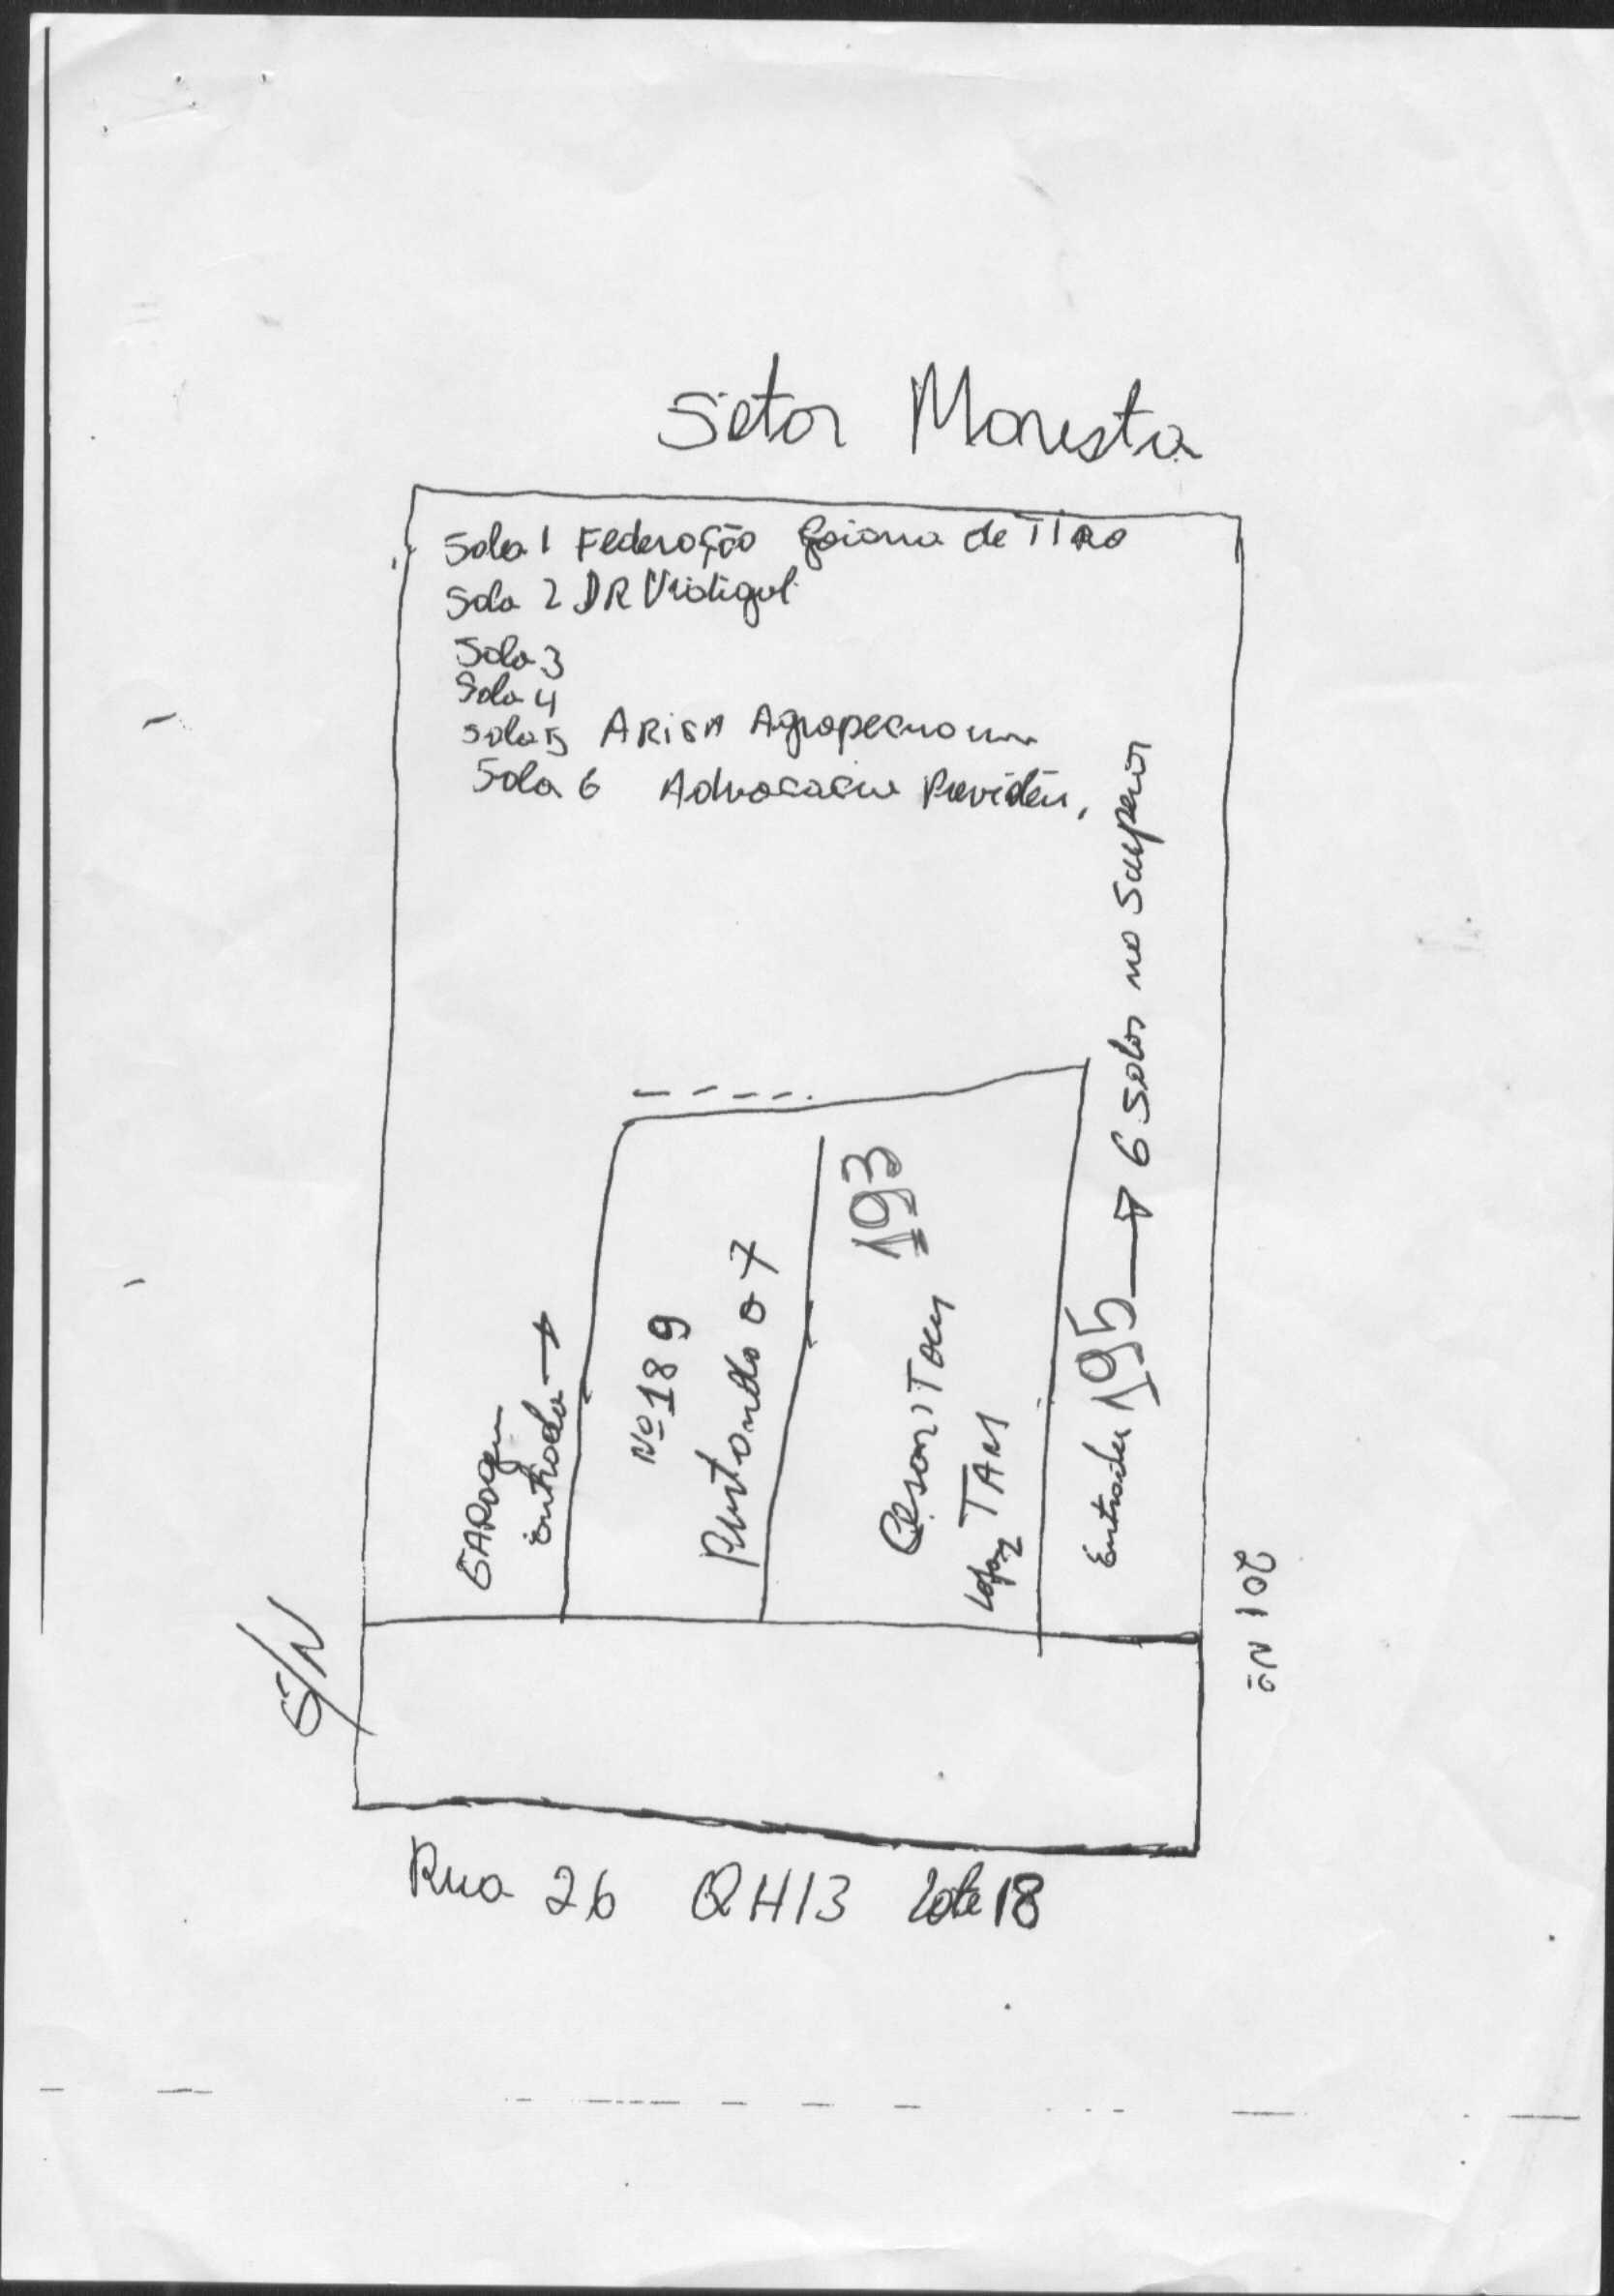 Setor Marista
Sala 1 Federação Goiana de TIRO
Sala 2 DR
Sala 3
Sala 4
Sala 5 ARISA Agropecuaria
Sala 6 Advocacia Previdên.
6 Salas no Superior
GARAgem
entrada
Nº 189
07
193
TAM
Entrada 195
S/N
201 Nº
Rua 26 QH13 Lote 18